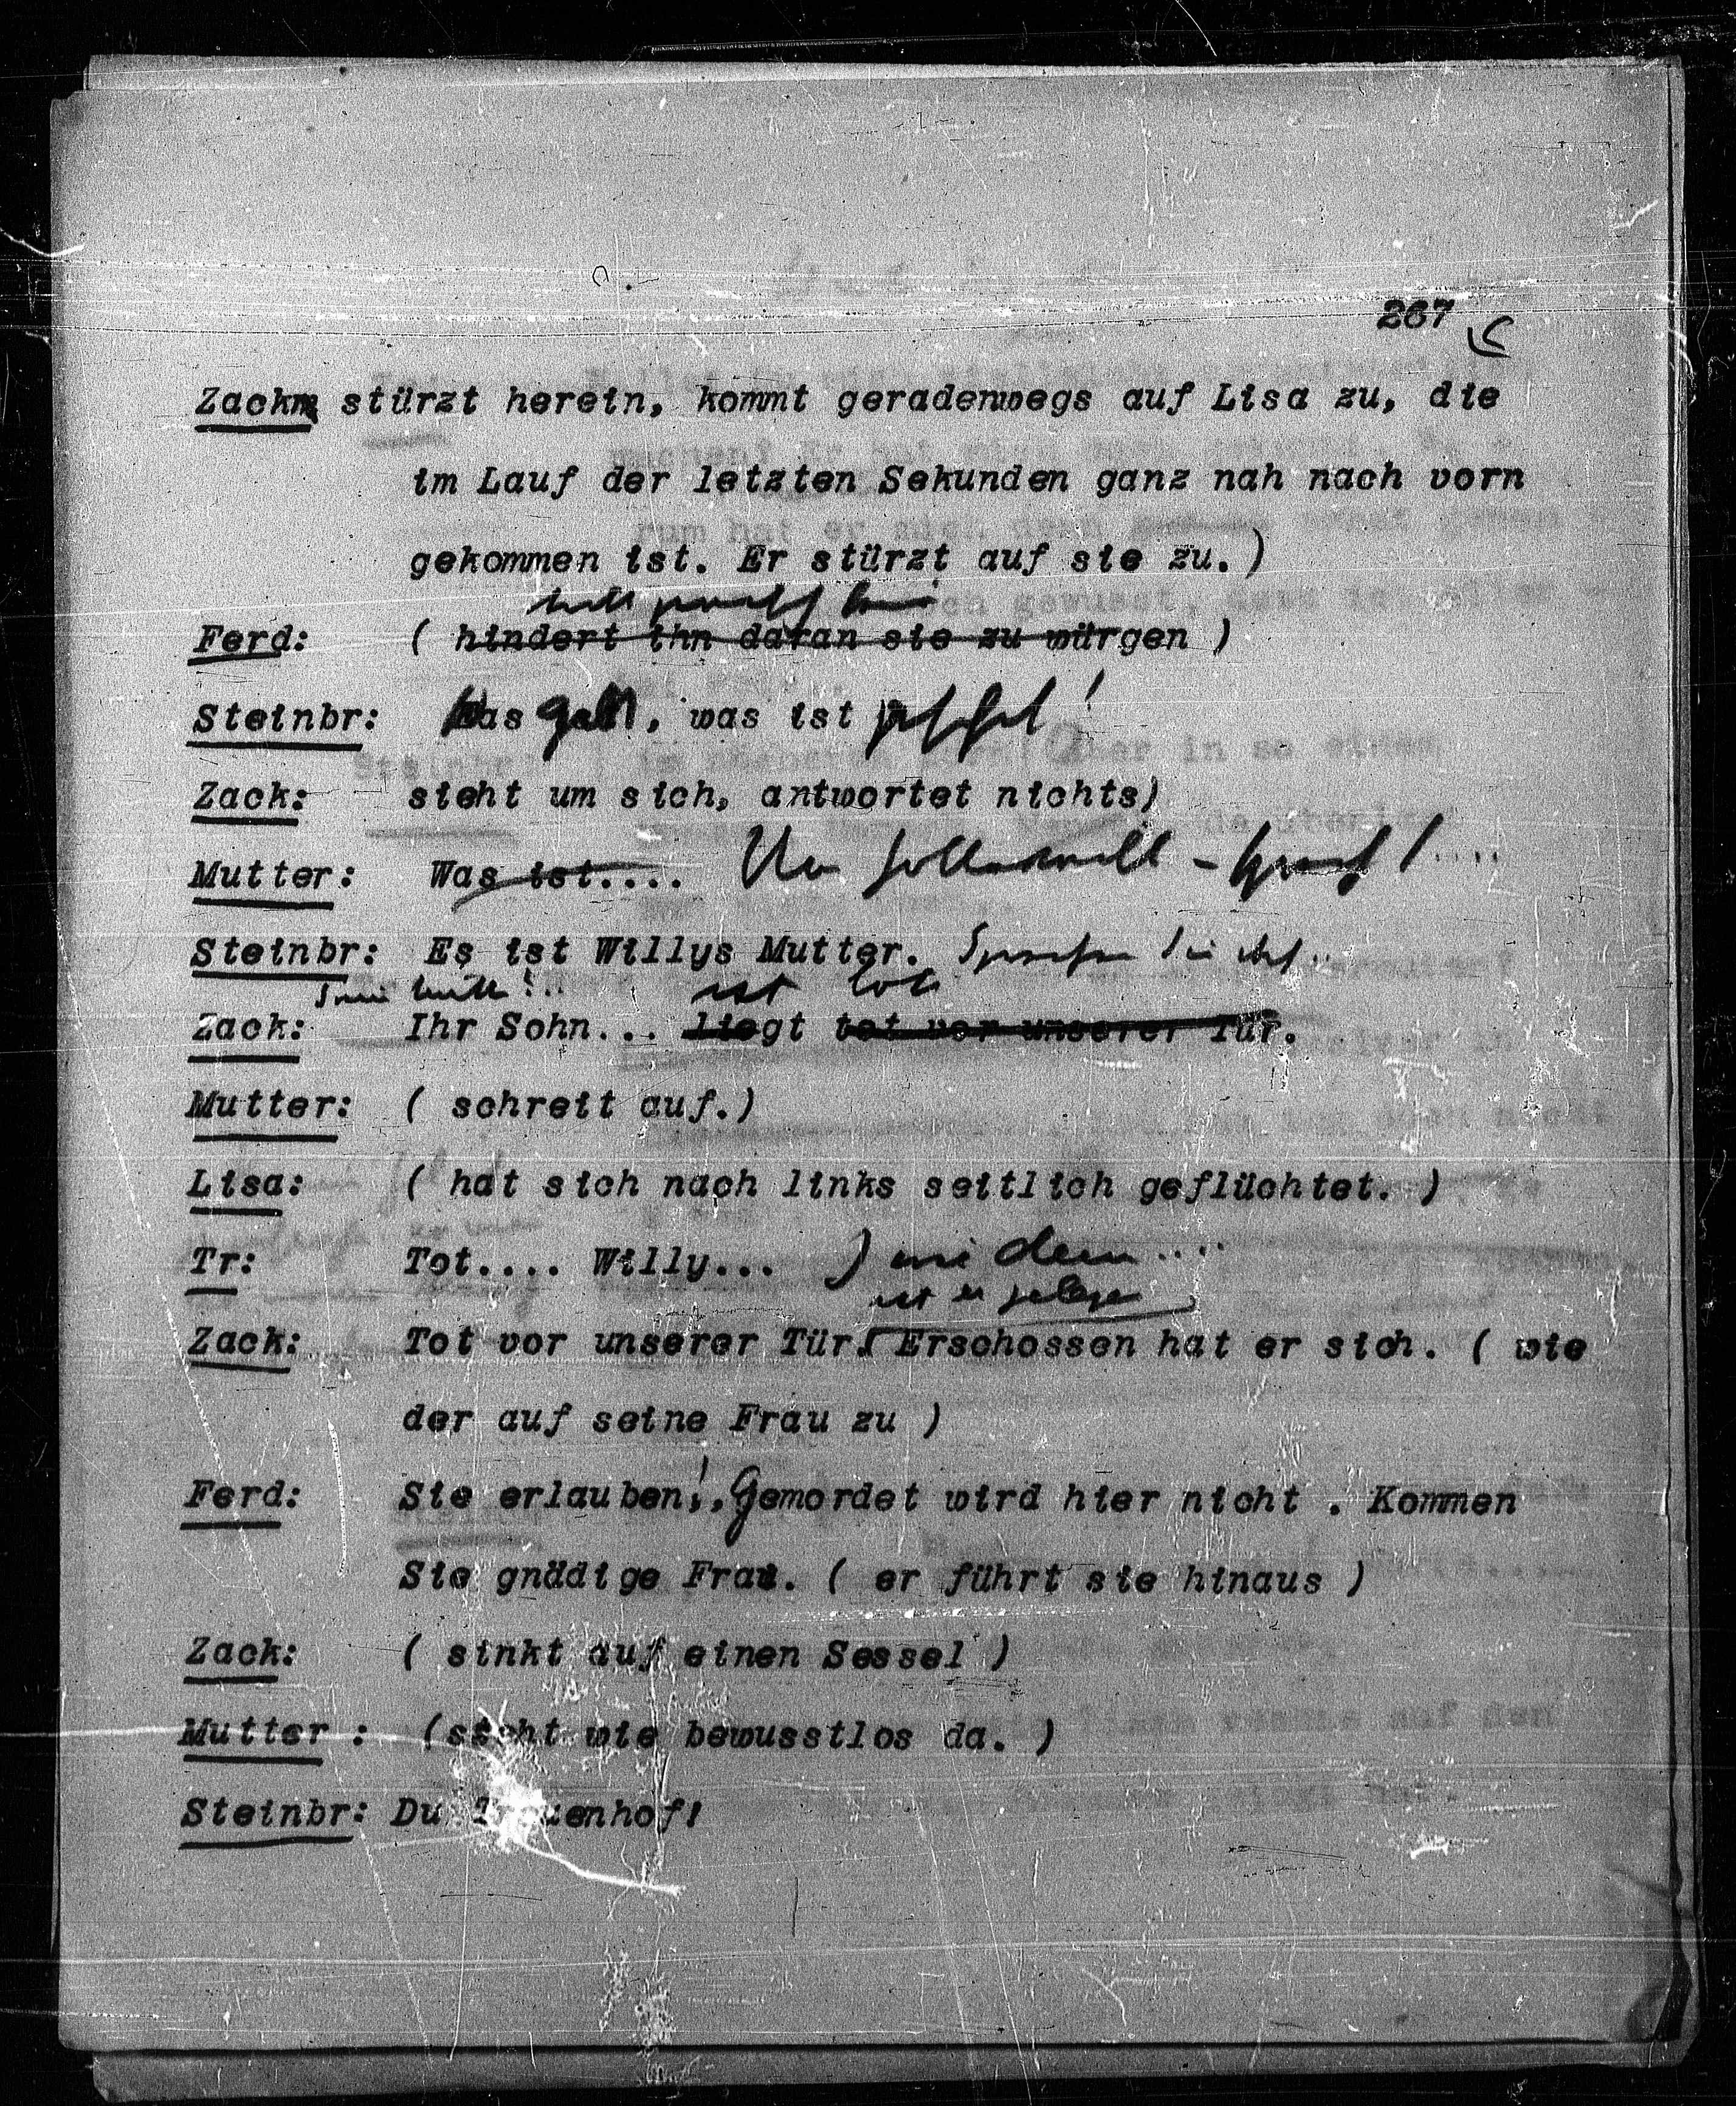 267
Zack stürzt herein, kommt geradenwegs auf Lisa zu, die
im Lauf der letzten Sekunden ganz nah nach vorn
gekommen ist. Er stürzt auf sie zu.)
Ferd: ( hindert ihn daran sie zu würgen )
Steinbr: Was , was ist !
Zack: sieht um sich, antwortet nichts)
Mutter: Was ist....
Steinbr: Es ist Willys Mutter.
ist tot
Zack: Ihr Sohn... liegt tot vor unserer Tür.
Mutter: ( schreit auf.)
Lisa: ( hat sich nach links seitlich geflüchtet. )
Tr: Tot.... Willy...
ist er gelegen
Zack: Tot vor unserer Tür. Erschossen hat er sich. ( wie
der auf seine Frau zu )
Ferd: Sie erlauben! Gemordet wird hier nicht . Kommen
Sie gnädige Frau. ( er führt sie hinaus )
Zack: ( sinkt auf einen Sessel )
Mutter : (steht wie bewusstlos da. )
Steinbr: Du Treuenhof!